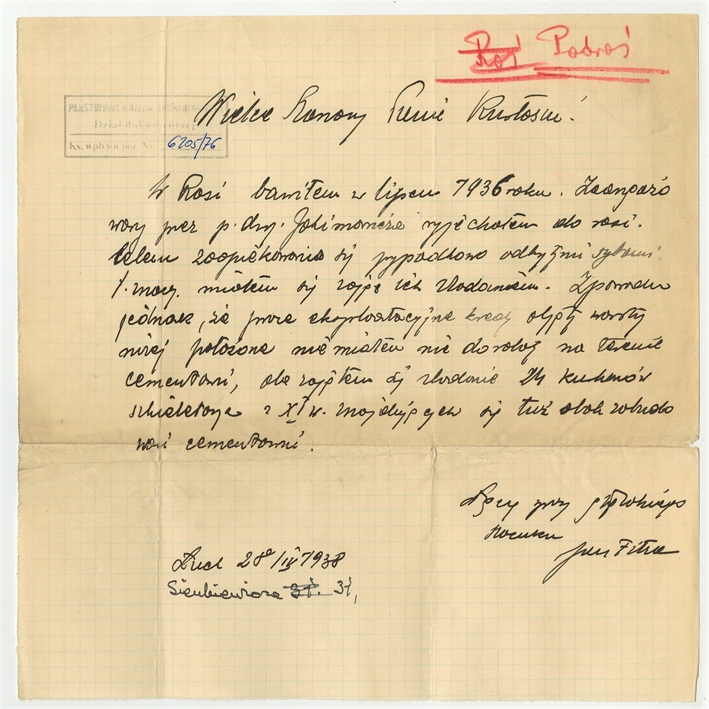 Roś Podroś
PAŃSTWOWE MUZEUM ARCHEOLOG
Dział dokumentacji
Ks. wpływu poz. Nr. 6205/76
Wielce Szanowny Panie Kustoszu!
W Rosi bawiłem w lipcu 1936 roku. Zaangażo
wany przez p. dyr. Jakimowicza wyjechałem do Rosi.
Celem zaopiekowania się przypadkowo odkrytymi
t. znacz. miałem się zająć ich zbadaniem. Z powodu
jednak, że prace eksploatacyjne kredy objęły warstwy
niżej położone nie miałem nic do roboty na terenie
cementowni, ale zająłem się zbadanie 24 kurhanów
szkieletowych z XI w. znajdujących się tuż obok zabudo
wań cementowni.
Łączę wyrazy głębokiego
szacunku
Jan Fitzke
Łuck 28/IV 1938
Sienkiewicza 31. 31,